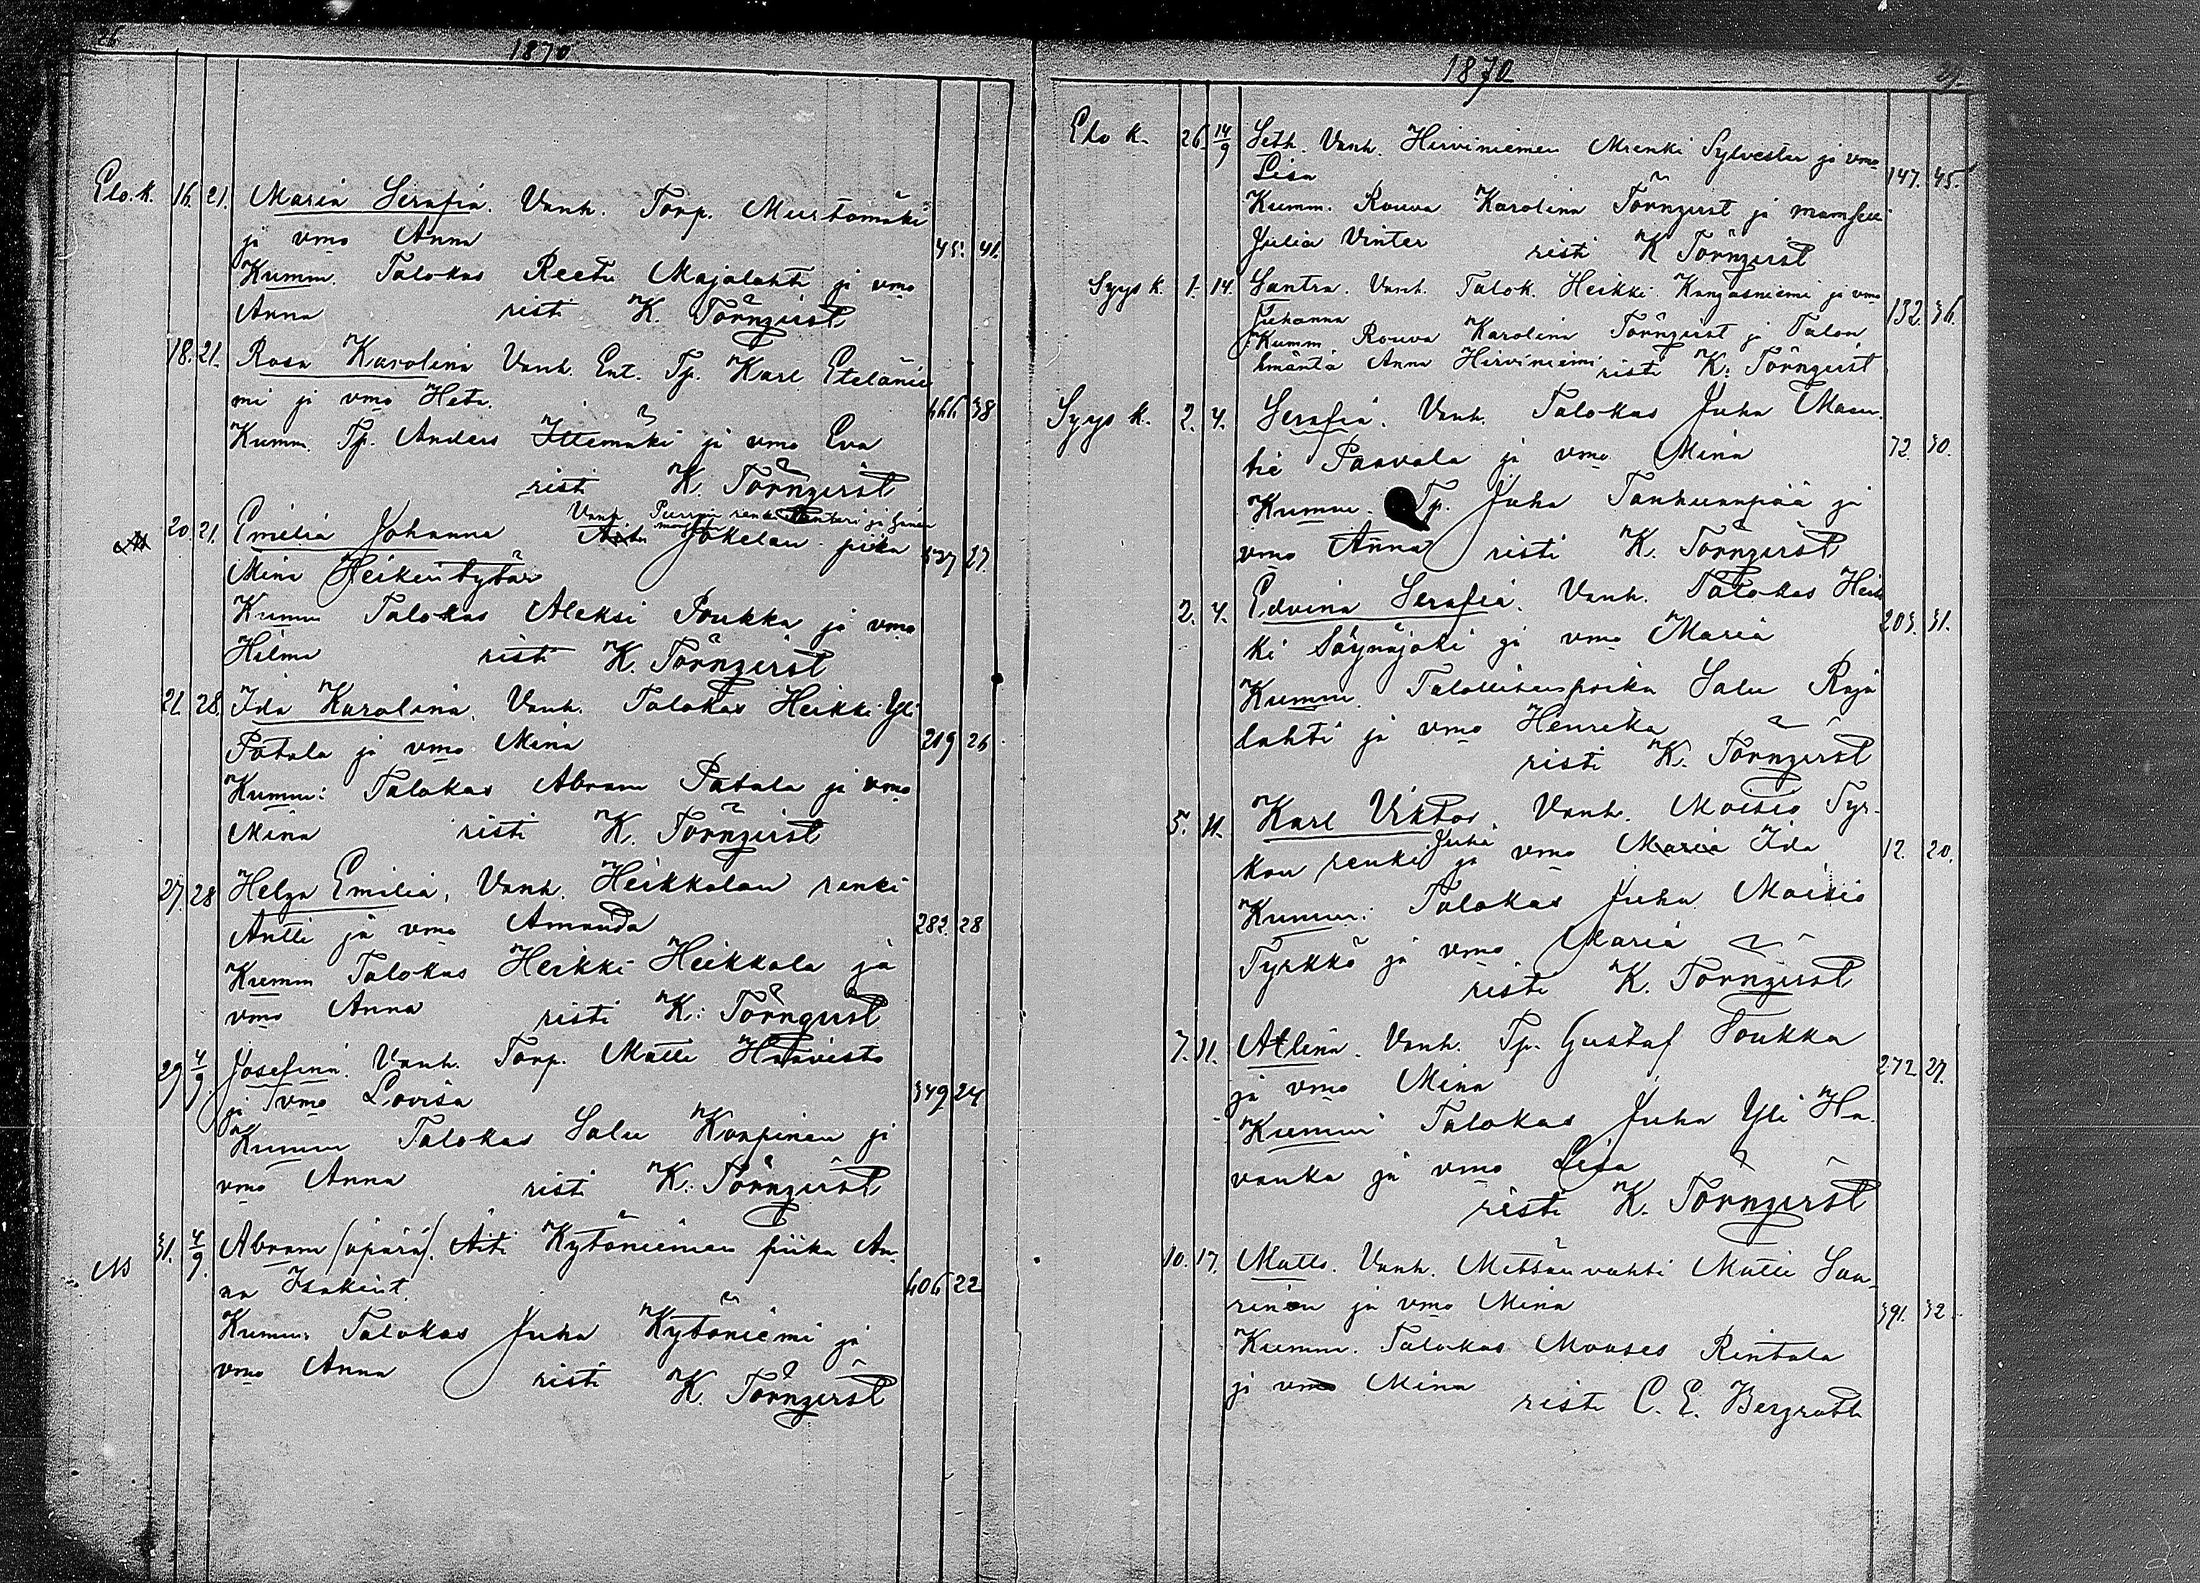 26
1870
Elo.k. 16. 21. Maria Serafia. Vanh. Torp. Murtomäki
ja vmo Anna 45. 41.
Kumm. Talokas Reeti Majalahti ja vmo
Anna risti K. Törnqvist
18. 21. Rosa Karolina Vanh. Ent. Tp. Karl Etelänie
mi ja vmo Heta. 38
Kumm. Tp. Anders Ittemäki ja vmo Eva
risti K. Törnqvist
Vanh. renki ja hänen
20. 21. Emilia Johanna Jokelan piika 27.
Mina Heikintytär
Kumm Talokas Aleksi Poukka ja vmo
Hilma risti K. Törnqvist
21. 28. Ida Karolina. Vanh. Talokas Heikki Yli
Patala ja vmo Mina 219 26
Kumm: Talokas Abram Patala ja vmo
Mina risti K. Törnqvist
27. 28 Helga Emilia, Vanh. Heikkalan renki
Antti ja vmo Amanda 282. 28
Kumm Talokas Heikki Heikkala ja
vmo Anna risti K. Törnqvist
29 4/9 Josefina. Vanh. Torp. Matti Haavisto
ja vmo Lovisa 349 24
Kumm Talokas Salu Korpinen ja
vmo Anna risti K. Törnqvist
31. 4/9. Abram (äpärä). Äiti Kytöniemen piika An-
na Isakint. 406 22
Kumm: Talokas Juha Kytöniemi ja
vmo Anna risti K. Törnqvist
1870
27.
Elo k. 26. 14/9 Seth. Vanh. Hirviniemen Mrenki Sylvester ja vmo
Lisa 147. 45.
Kumm. Rouva Karolina Törnqvist ja mamseli
Julia Vinter risti K Törnqvist
Syys k. 1. 14. Santra. Vanh. Talok. Heikki Kangasniemi ja vmo
Juhanna 132. 36.
Kumm Rouva Karolina Törnqvist ja Talon
emäntä Anna Hirviniemi risti K. Törnqvist
Syys k. 2. 4. Serafia. Vanh. Talokas Juha Maun-
tie Paavola ja vmo Mina 72. 30.
Kumm. Tp. Juha Tanhuanpää ja
vmo Anna risti K. Törnqvist
2. 4. Edvina Serafia. Vanh. Talokas Heik
ki Säynäjoki ja vmo Maria 203. 31.
Kumm. Talollisenpoika Salu Raja
lahti ja vmo Henrika
risti K. Törnqvist
5. 11. Karl Viktor. Vanh. Moisio Tyr-
kön renki Juha ja vmo Maria Ida 12. 20.
Kumm: Talokas Juha Moisio
Tyrkkö ja vmo Maria
risti K. Törnqvist
7. 11. Allina. Vanh. Tp. Gustaf Poukka
ja vmo Mina 272 27.
Kumm Talokas Juha Yli Ha-
vanka ja vmo Lisa
risti K. Törnqvist
10. 17. Matts. Vanh. Mettän vahti Matti Saa-
rinen ja vmo Mina 391. 32
Kumm. Talokas Mooses Rintala
ja vmo Mina risti C. E. Bergroth